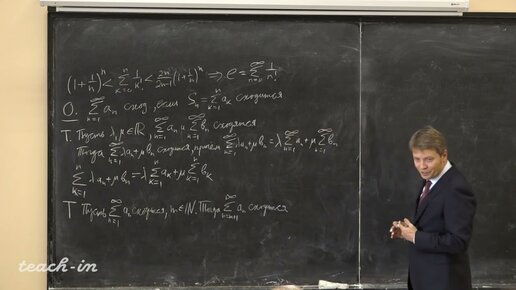 (1+1/n)^n < ∑_{k=0}^{n} 1/k! < 2n/(2n-1) (1+1/n)^n ⟹ e = ∑_{n=0}^{∞} 1/n!
O. ∑_{n=1}^{∞} a_n сход., если S_n = ∑_{k=1}^{n} a_k сходится
Т. Пусть λ, μ ∈ ℝ, ∑_{n=1}^{∞} a_n и ∑_{n=1}^{∞} b_n сходятся
Тогда ∑_{n=1}^{∞} λa_n + μb_n сходится, причем ∑_{n=1}^{∞} λa_n + μb_n = λ∑_{n=1}^{∞} a_n + μ∑_{n=1}^{∞} b_n
∑_{k=1}^{n} λa_k + μb_k = λ∑_{k=1}^{n} a_k + μ∑_{k=1}^{n} b_k
Т Пусть ∑_{n=1}^{∞} a_n сходится, m ∈ ℕ. Тогда ∑_{n=m+1}^{∞} a_n сходится
teach-in